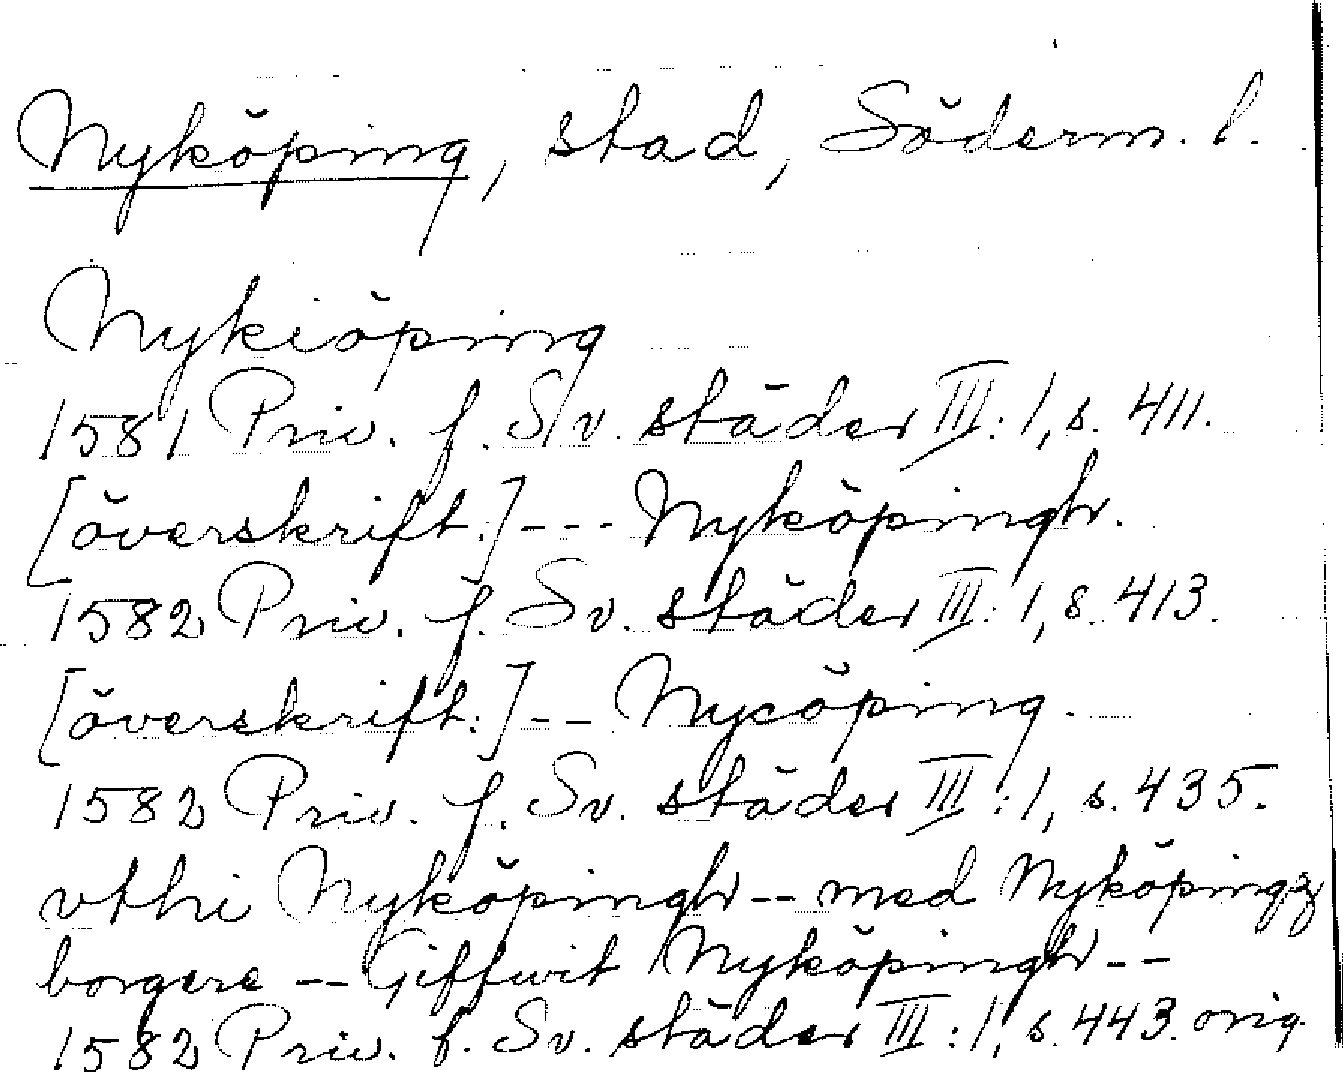 Nyköping, stad, Söderm. l.
Nykiöping
1581 Priv. f. Sv. städer III:1, s. 411.
[överskrift:] --- Nyköpingh.
1582 Priv. f. Sv. städer III:1, s. 413.
[överskrift:] -- Nycöping.
1582 Priv. f. Sv. städer III:1, s. 435.
vthi Nyköpingh -- med Nyköpingz
borgere -- Giffwit Nyköpingh --
1582 Priv. f. Sv. städer III:1, s. 443. orig.